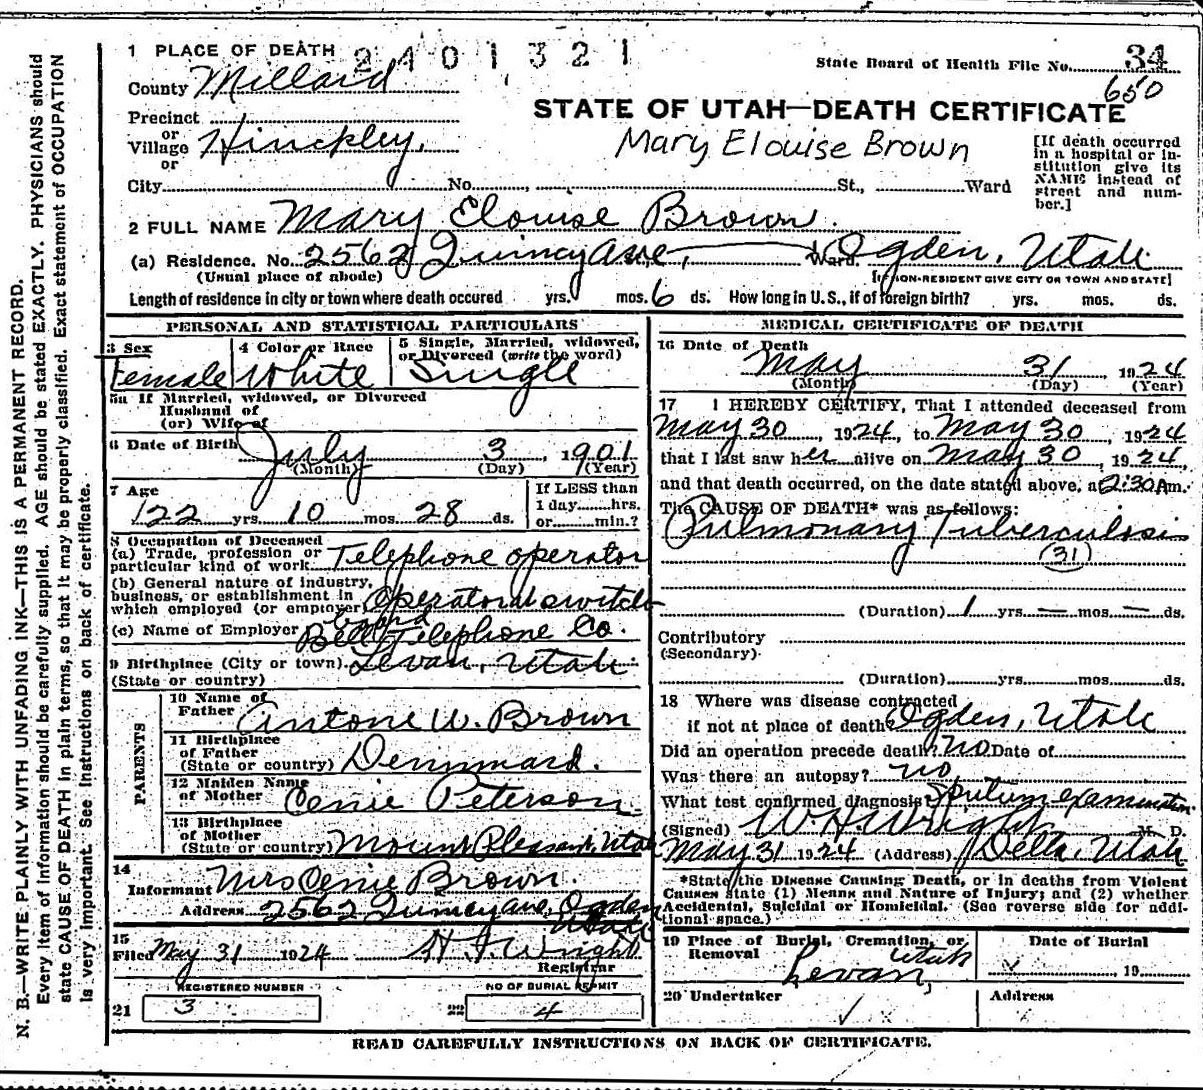 1 PLACE OF DEATH 2401321
State Board of Health File No. 34
County Millard 650
STATE OF UTAH—DEATH CERTIFICATE
Precinct
or
Village Hinckley,
or
Mary Elouise Brown
[If death occurred
in a hospital or in-
stitution give its
NAME instead of
street and num-
ber.]
City No. , St., Ward
2 FULL NAME Mary Elouise Brown.
(a) Residence. No. 2562 Quincy Ave, Ward Ogden, Utah
(Usual place of abode) [If NON-RESIDENT GIVE CITY OR TOWN AND STATE]
Length of residence in city or town where death occured yrs. mos. 6 ds. How long in U.S., if of foreign birth? yrs. mos. ds.
PERSONAL AND STATISTICAL PARTICULARS
3 Sex
Female
4 Color or Race
White
5 Single, Married, widowed,
or Divorced (write the word)
Single
5a If Married, widowed, or Divorced
Husband of
(or) Wife of
6 Date of Birth July 3, 1901
(Month) (Day) (Year)
7 Age
22 yrs 10 mos. 28 ds.
If LESS than
1 day hrs.
or min.?
8 Occupation of Deceased
(a) Trade, profession or
particular kind of work Telephone operator
(b) General nature of industry,
business, or establishment in
which employed (or employer) Operator at switch
board
(c) Name of Employer Bell Telephone Co.
9 Birthplace (City or town) Levan, Utah
(State or country)
PARENTS
10 Name of
Father Antone W. Brown
11 Birthplace
of Father
(State or country) Denmark.
12 Maiden Name
of Mother Cenie Peterson
13 Birthplace
of Mother
(State or country) Mount Pleasant, Utah
14
Informant Mrs Cenie Brown.
Address 2562 Quincy Ave, Ogden
Utah
15
Filed May 31 1924 Wright
Registrar
REGISTERED NUMBER
21 3
NO OF BURIAL PERMIT
22 4
MEDICAL CERTIFICATE OF DEATH
16 Date of Death
May 31, 1924
(Month) (Day) (Year)
17 I HEREBY CERTIFY, That I attended deceased from
May 30, 1924, to May 30, 1924
that I last saw her alive on May 30, 1924,
and that death occurred, on the date stated above, at 2:30 A m.
The CAUSE OF DEATH* was as follows:
Pulmonary Tuberculosis
31
(Duration) 1 yrs. — mos. — ds.
Contributory
(Secondary)
(Duration) yrs. mos. ds.
18 Where was disease contracted
if not at place of death? Ogden, Utah
Did an operation precede death? no Date of
Was there an autopsy? no
What test confirmed diagnosis? Sputum examination
(Signed) W H Wright M. D.
May 31 1924 (Address) Delta, Utah
*State the Disease Causing Death, or in deaths from Violent
Causes state (1) Means and Nature of Injury; and (2) whether
Accidental, Suicidal or Homicidal. (See reverse side for addi-
tional space.)
19 Place of Burial, Cremation, or
Removal Levan, Utah
Date of Burial
, 19
20 Undertaker
Address
READ CAREFULLY INSTRUCTIONS ON BACK OF CERTIFICATE.
N. B.—WRITE PLAINLY WITH UNFADING INK—THIS IS A PERMANENT RECORD.
Every item of information should be carefully supplied. AGE should be stated EXACTLY. PHYSICIANS should
state CAUSE OF DEATH in plain terms, so that it may be properly classified. Exact statement of OCCUPATION
is very important. See instructions on back of certificate.